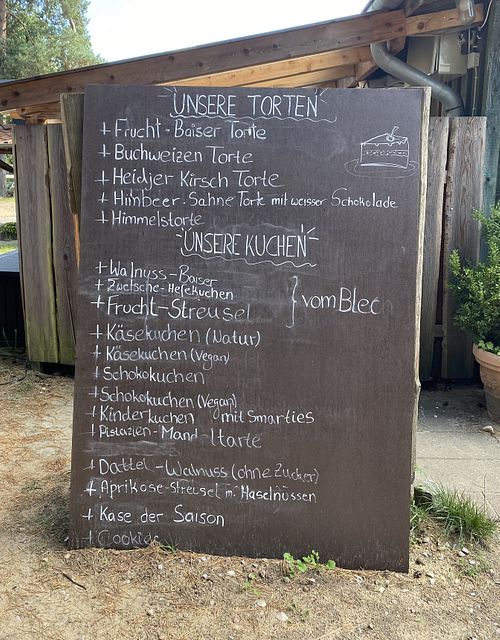 UNSERE TORTEN
+ Frucht-Baiser Torte
+ Buchweizen Torte
+ Heidjer Kirsch Torte
+ Himbeer-Sahne Torte mit weisser Schokolade
+ Himmelstorte
UNSERE KUCHEN
+ Walnuss-Baiser
+ Zwetsche-Hefekuchen
+ Frucht-Streusel } vom Blec
+ Käsekuchen (Natur)
+ Käsekuchen (Vegan)
+ Schokokuchen
+ Schokokuchen (Vegan)
+ Kinderkuchen mit Smarties
+ Pistazien-Mand ltarte
+ Dattel-Walnuss (ohne Zucker)
+ Aprikose-Streusel m. Haselnüssen
+ Käse der Saison
+ Cookies